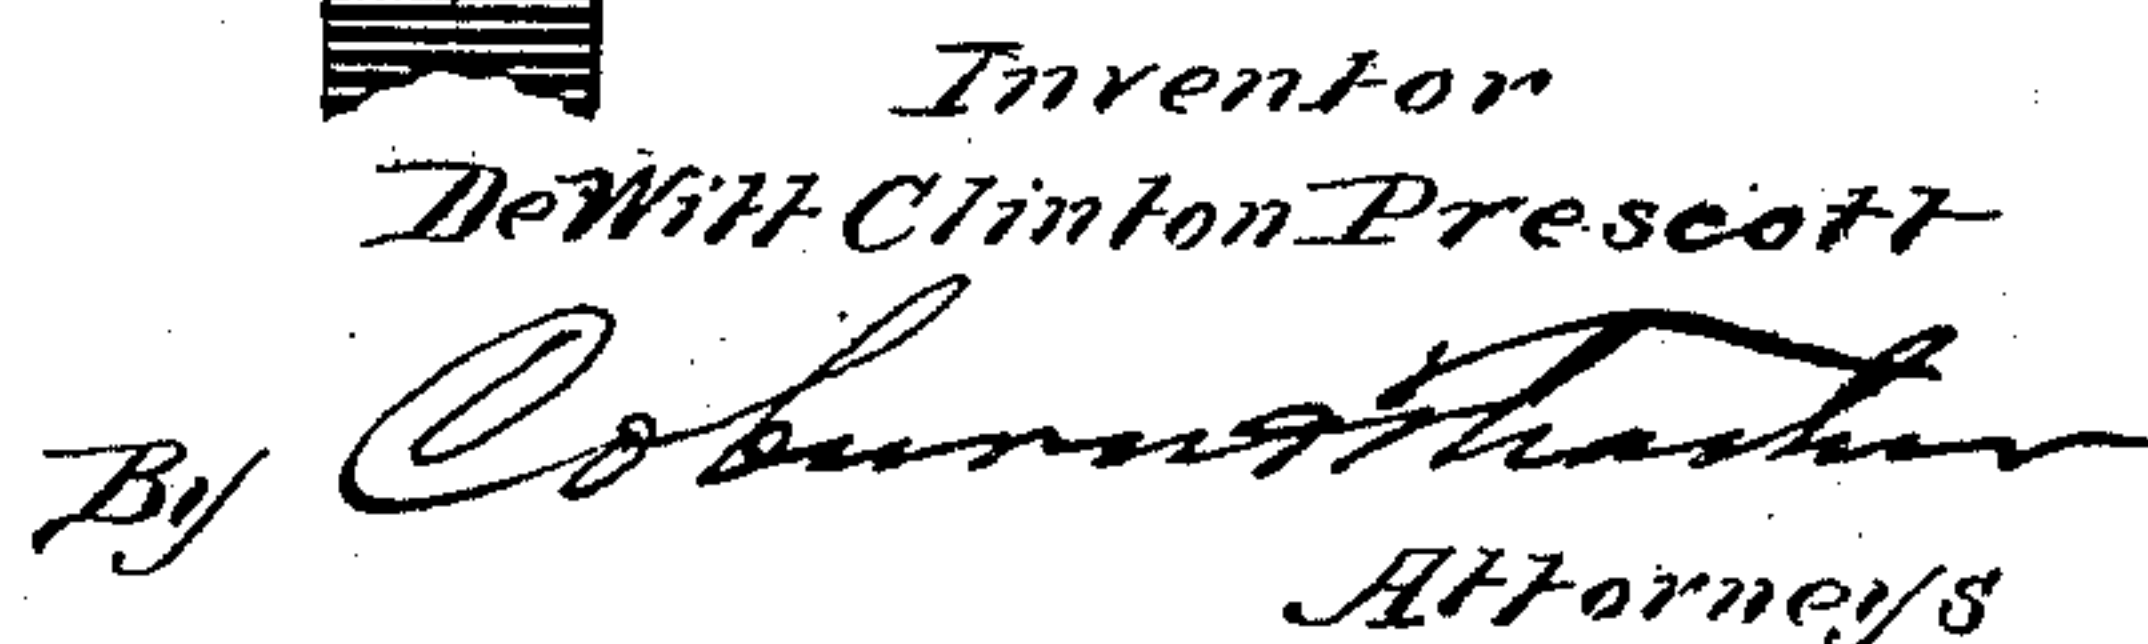 Inventor
DeWitt Clinton Prescott
By Coburn & Thacher
Attorneys